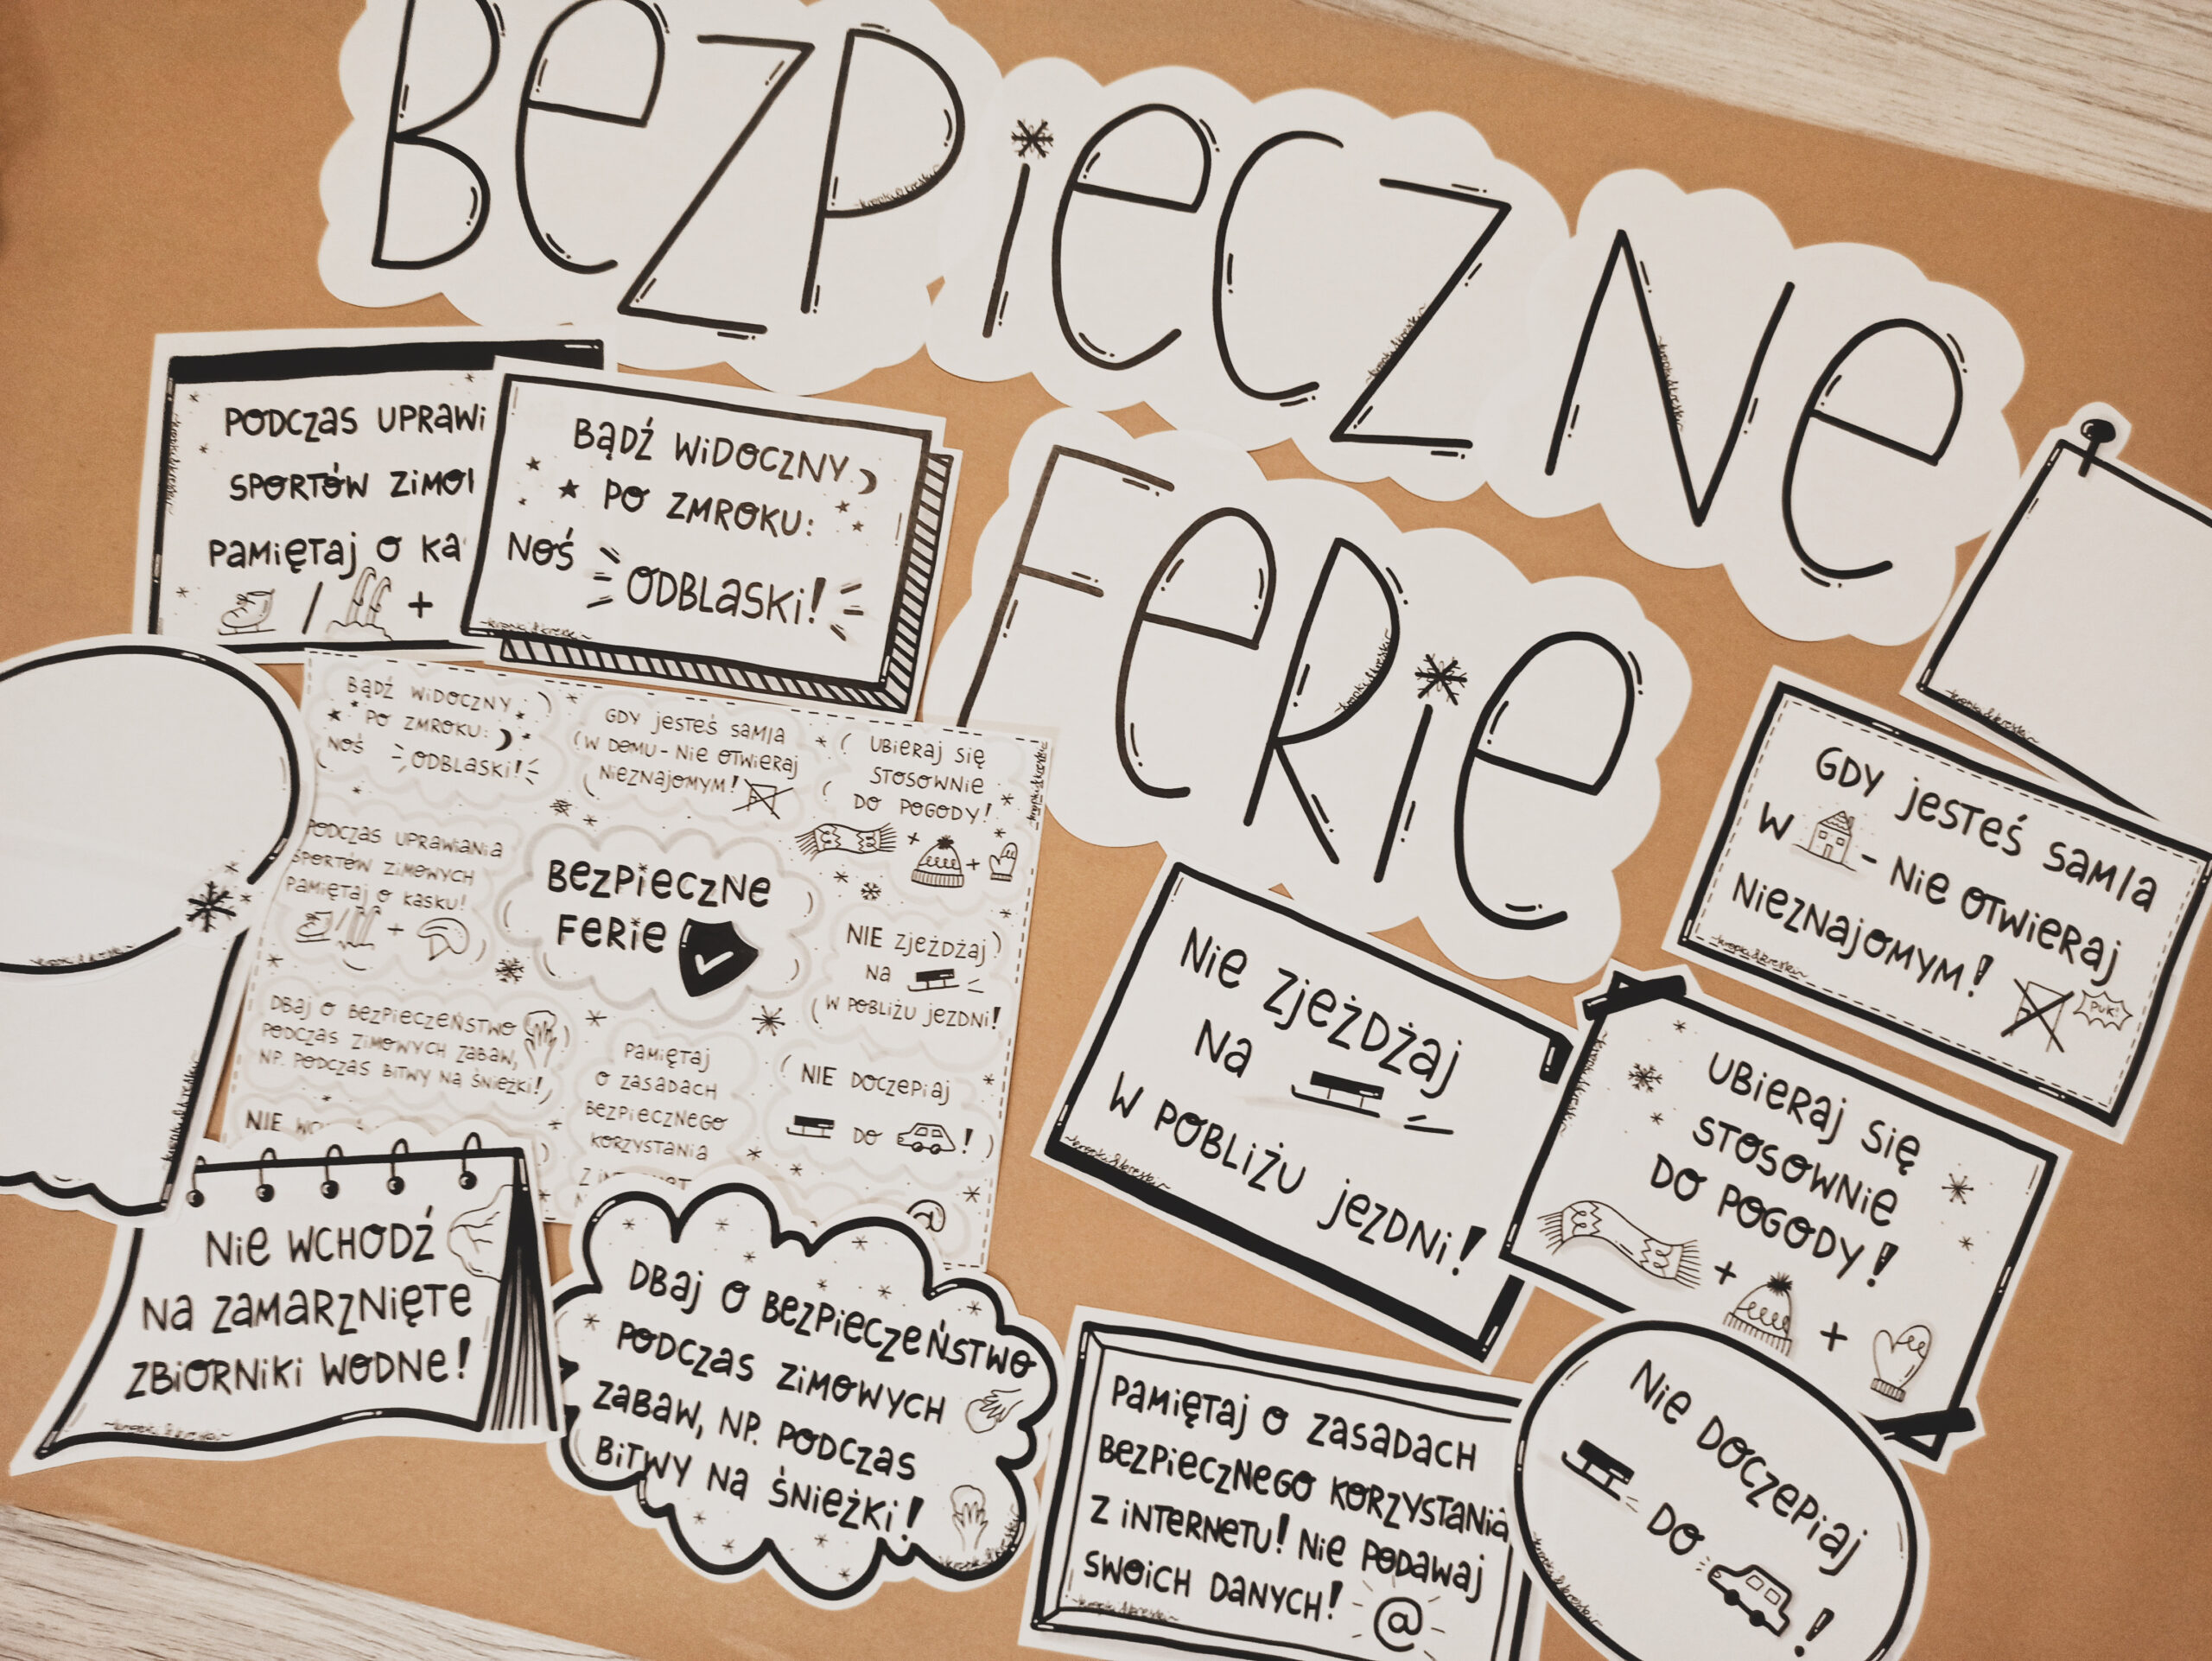 BEZPIECZNE
FERIE
PODCZAS UPRAWI
SPORTÓW ZIMO
PAMIĘTAJ O KA
/ +
BĄDŹ WIDOCZNY
PO ZMROKU:
NOŚ ODBLASKI!
BĄDŹ WIDOCZNY
PO ZMROKU:
NOŚ ODBLASKI!
GDY JESTEŚ SAM/A
W DOMU - NIE OTWIERAJ
NIEZNAJOMYM!
UBIERAJ SIĘ
STOSOWNIE
DO POGODY!
+ +
PODCZAS UPRAWIANIA
SPORTÓW ZIMOWYCH
PAMIĘTAJ O KASKU!
/ +
BEZPIECZNE
FERIE
NIE ZJEŻDŻAJ
NA
W POBLIŻU JEZDNI!
DBAJ O BEZPIECZEŃSTWO
PODCZAS ZIMOWYCH ZABAW,
NP. PODCZAS BITWY NA ŚNIEŻKI!
PAMIĘTAJ
O ZASADACH
BEZPIECZNEGO
KORZYSTANIA
Z INTERNET
NIE DOCZEPIAJ
DO !
NIE WC
@
GDY JESTEŚ SAM/A
W - NIE OTWIERAJ
NIEZNAJOMYM!
PUK!
NIE ZJEŻDŻAJ
NA
W POBLIŻU JEZDNI!
UBIERAJ SIĘ
STOSOWNIE
DO POGODY!
+ +
NIE WCHODŹ
NA ZAMARZNIĘTE
ZBIORNIKI WODNE!
DBAJ O BEZPIECZEŃSTWO
PODCZAS ZIMOWYCH
ZABAW, NP. PODCZAS
BITWY NA ŚNIEŻKI!
PAMIĘTAJ O ZASADACH
BEZPIECZNEGO KORZYSTANIA
Z INTERNETU! NIE PODAWAJ
SWOICH DANYCH! @
NIE DOCZEPIAJ
DO !